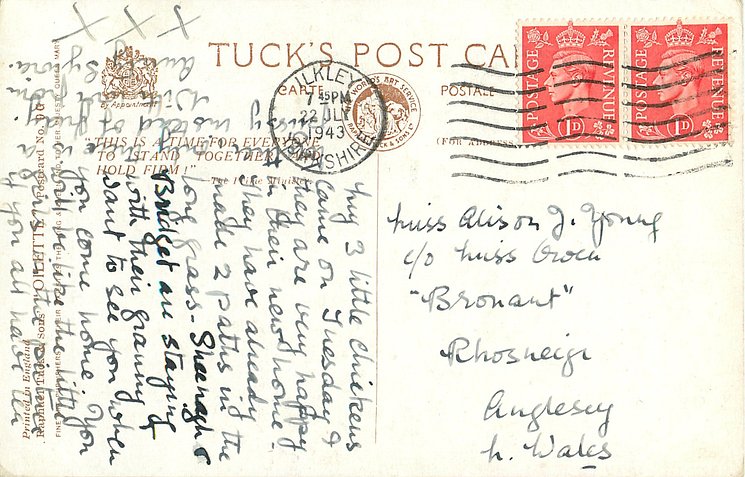 TUCK'S POST CA
CARTE
POSTALE
(FOR ADDRESS
By Appointment
WORLD'S ART SERVICE
ILKLEY
7 45 PM
22 JLY
1943
YORKSHIRE
POSTAGE
REVENUE
1D
POSTAGE
REVENUE
1D
"THIS IS A TIME FOR EVERYONE
TO STAND TOGETHER, AND
HOLD FIRM!"
The Prime Minister
Miss Alison J. Young
c/o Miss
"Bronant"
Rhosneigr
Anglesey
N. Wales
My 3 little chickens
came on Tuesday &
they are very happy
in their new home.
They have already
made 2 paths in the
long grass - Sheenagh &
Bridget are staying
with their granny &
want to see you when
you come home. You
like the
if you all have
instead of
X X X
Printed in England
Raphael Tuck & Sons
Postcard No.